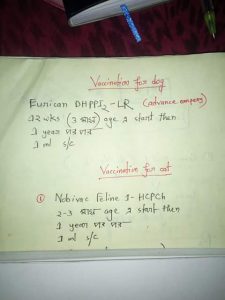 Vaccination for dog
Eunican DHPPI₂-LR (advance company)
12 wks (3 মাস) age এ start then
1 year পর পর
1 ml s/c
Vaccination for cat
① Nobivac Feline 1-HCPCh
2-3 মাস age এ start then
1 year পর পর
1 ml s/c